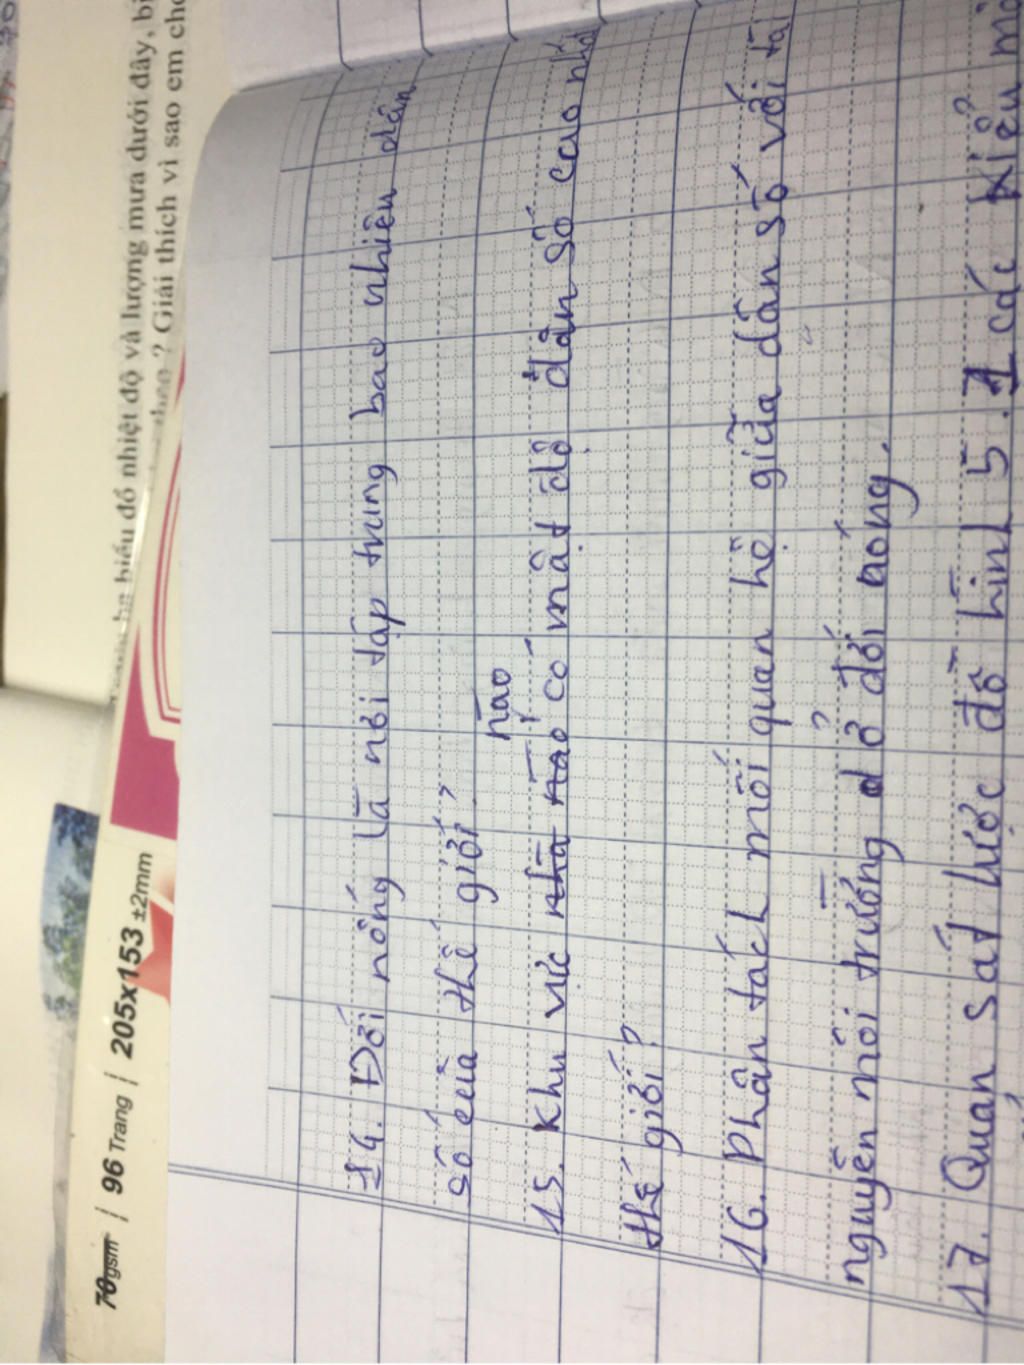 biểu đồ nhiệt độ và lượng mưa dưới đây,
? Giải thích vì sao em
70gsm | 96 Trang | 205x153 ±2mm
14. Đới nống là nơi tập trung bao nhiên dân
số của thế giới?
nào
15. Khu vực nhà nào có mật độ dân số cao
thế giới?
16. Phân tách mối quan hệ giữa dân số với tài
nguyên môi trường ở đới nóng.
17. Quan sát lược đồ hình 5.1 các kiểu